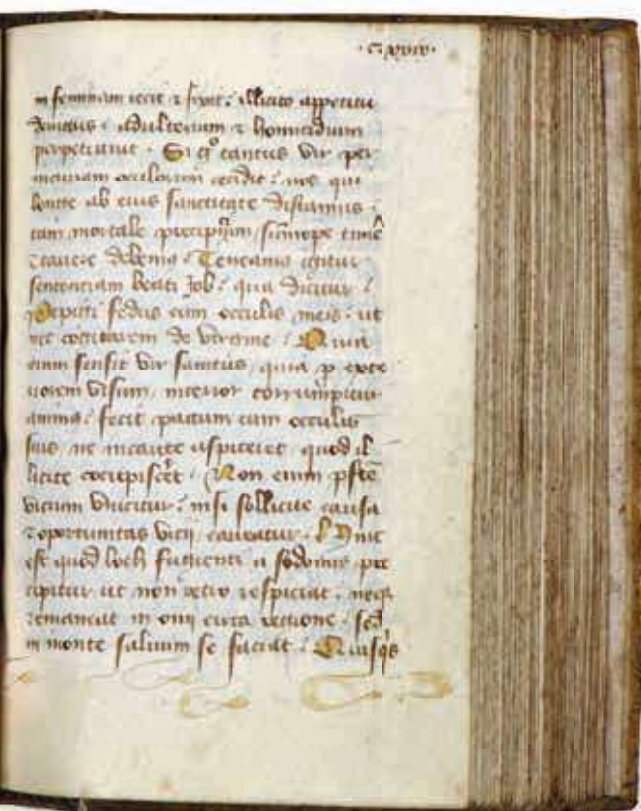 in feminam iecit ⁊ … illicito appetitu
… adulterium ⁊ homicidium
perpetravit . Si gͦ tantus vir per
incuriam occulorum cecidit : nos qui
longe ab eius sanctitate distamus :
tam mortale precipiciū summope timē
⁊ cavere debemus : Teneamus igitur
sentenciam beati Job : qua dicitur :
Pepigi fedus cum occulis meis : ut
ne cogitarem de virgine : Quia
enim sensit vir sanctus , quia ꝑ exte
riorem visum , interior corrumpitur
anima : fecit pactum cum occulis
suis , ne incaute aspiceret quod il
licite concupisc̄et . Non enim pfc̄e
vicium vincitur : nisi sollicite causa
⁊ oportunitas vicij caveatur . Hinc
est quod loth fugienti a sodomis pre
cipitur ut non retro respiciat : neqꝫ
remaneat in omi circa regione : sed
in monte salvum se faciat : Quisqͥs